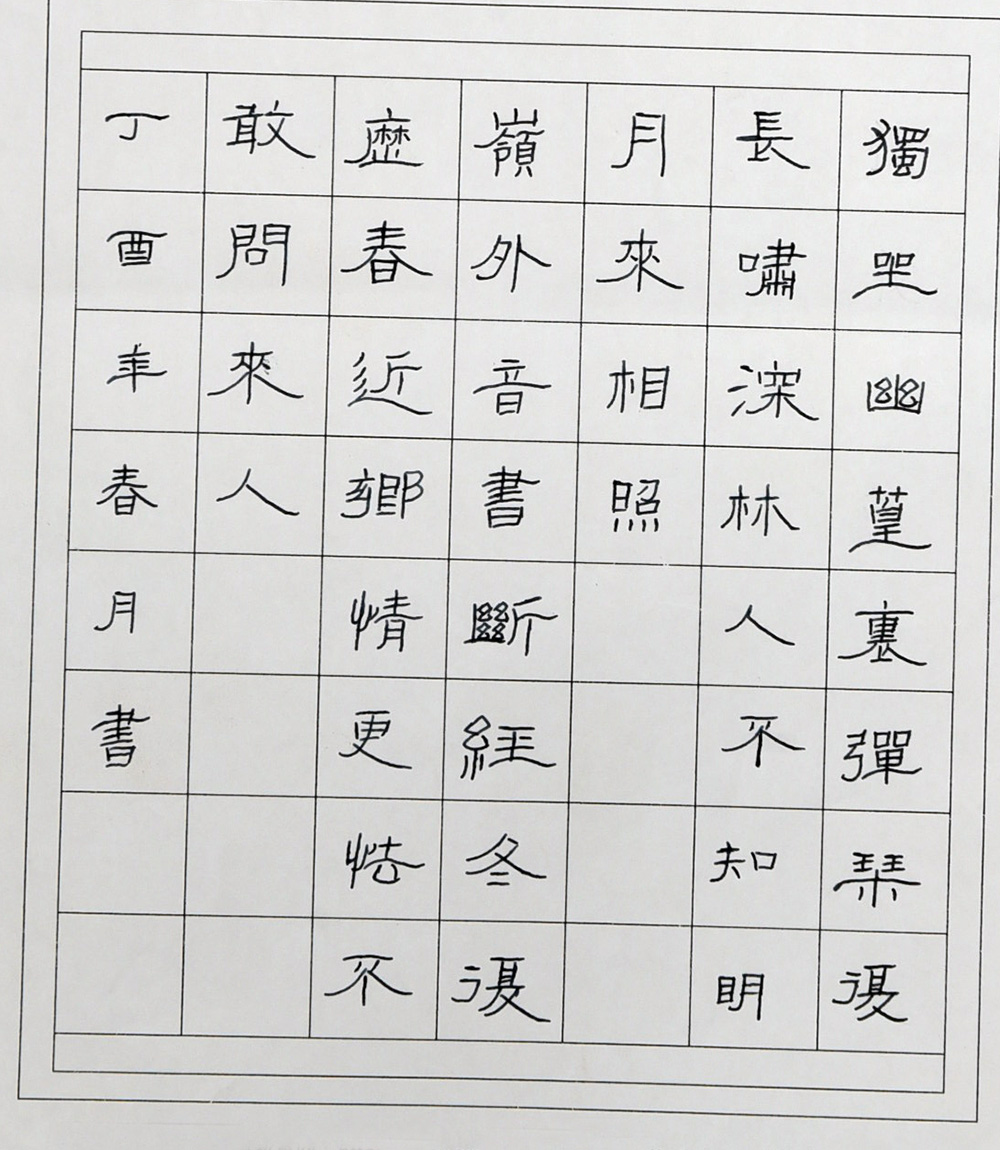 獨坐幽篁裏彈琴復
長嘯深林人不知明
月來相照
嶺外音書斷經冬復
歷春近鄉情更怯不
敢問來人
丁酉年春月書